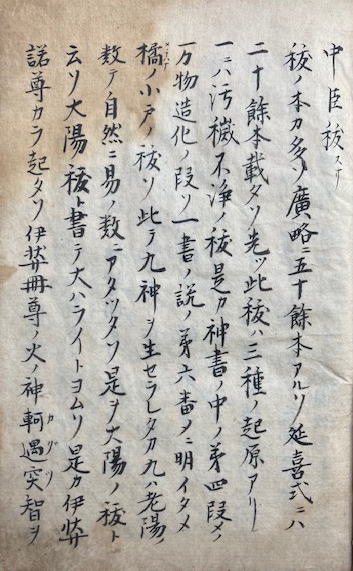 中臣祓ヌサ
祓ノ本カ多ソ廣略ニ五十餘本アルソ延喜式ニハ
二十餘本載タソ先ツ此祓ハ三種ノ起原アリ
一ニハ汚穢不浄ノ祓是カ神書ノ中ノ第四段メノ
万物造化ノ段ソ一書ノ説ノ第六番ヲニ明イタメ
橘ノ小戸ノ祓ソ此テ九神ヲ生セラレタカ九ハ老陽ノ
数テ自然ニ易ノ数ニアタツタソ是ヲ大陽ノ祓ト
云ソ大陽祓ト書テ大ハライトヨムソ是カ伊弉
諾尊カラ起タソ伊弉冊尊ノ火ノ神軻遇突智ヲ